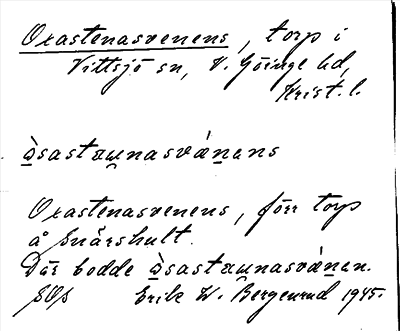 Oxastenasvenens, torp i
Vittsjö sn, V. Göinge hd,
Krist. l.
òsastau̯nasvánens
Oxastenasvenens, förr torp
å Snärshult.
Där bodde òsastau̯nasvánen.
Erik W. Bergenrud 1945.